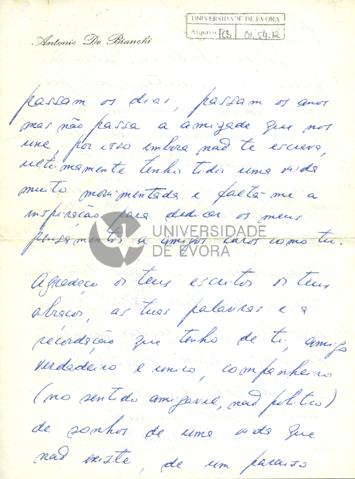 UNIVERSIDADE DE ÉVORA
Arquivo FCB
Antonio De Bianchi
passam os dias, passam os anos
mas não passa a amizade que nos
une, por isso embora não te escreva,
ultimamente tenho tido uma vida
muito movimentada e falta-me a
inspiração para dedicar os meus
pensamentos a amigos caros como tu.
UNIVERSIDADE
DE ÉVORA
Agradeço os teus escritos os teus
abraços, as tuas palavras e a
recordação que tenho de ti, amigo
verdadeiro e único, companheiro
(no sentido amigavel, não politico)
de sonhos de uma vida que
não existe, de um paraiso